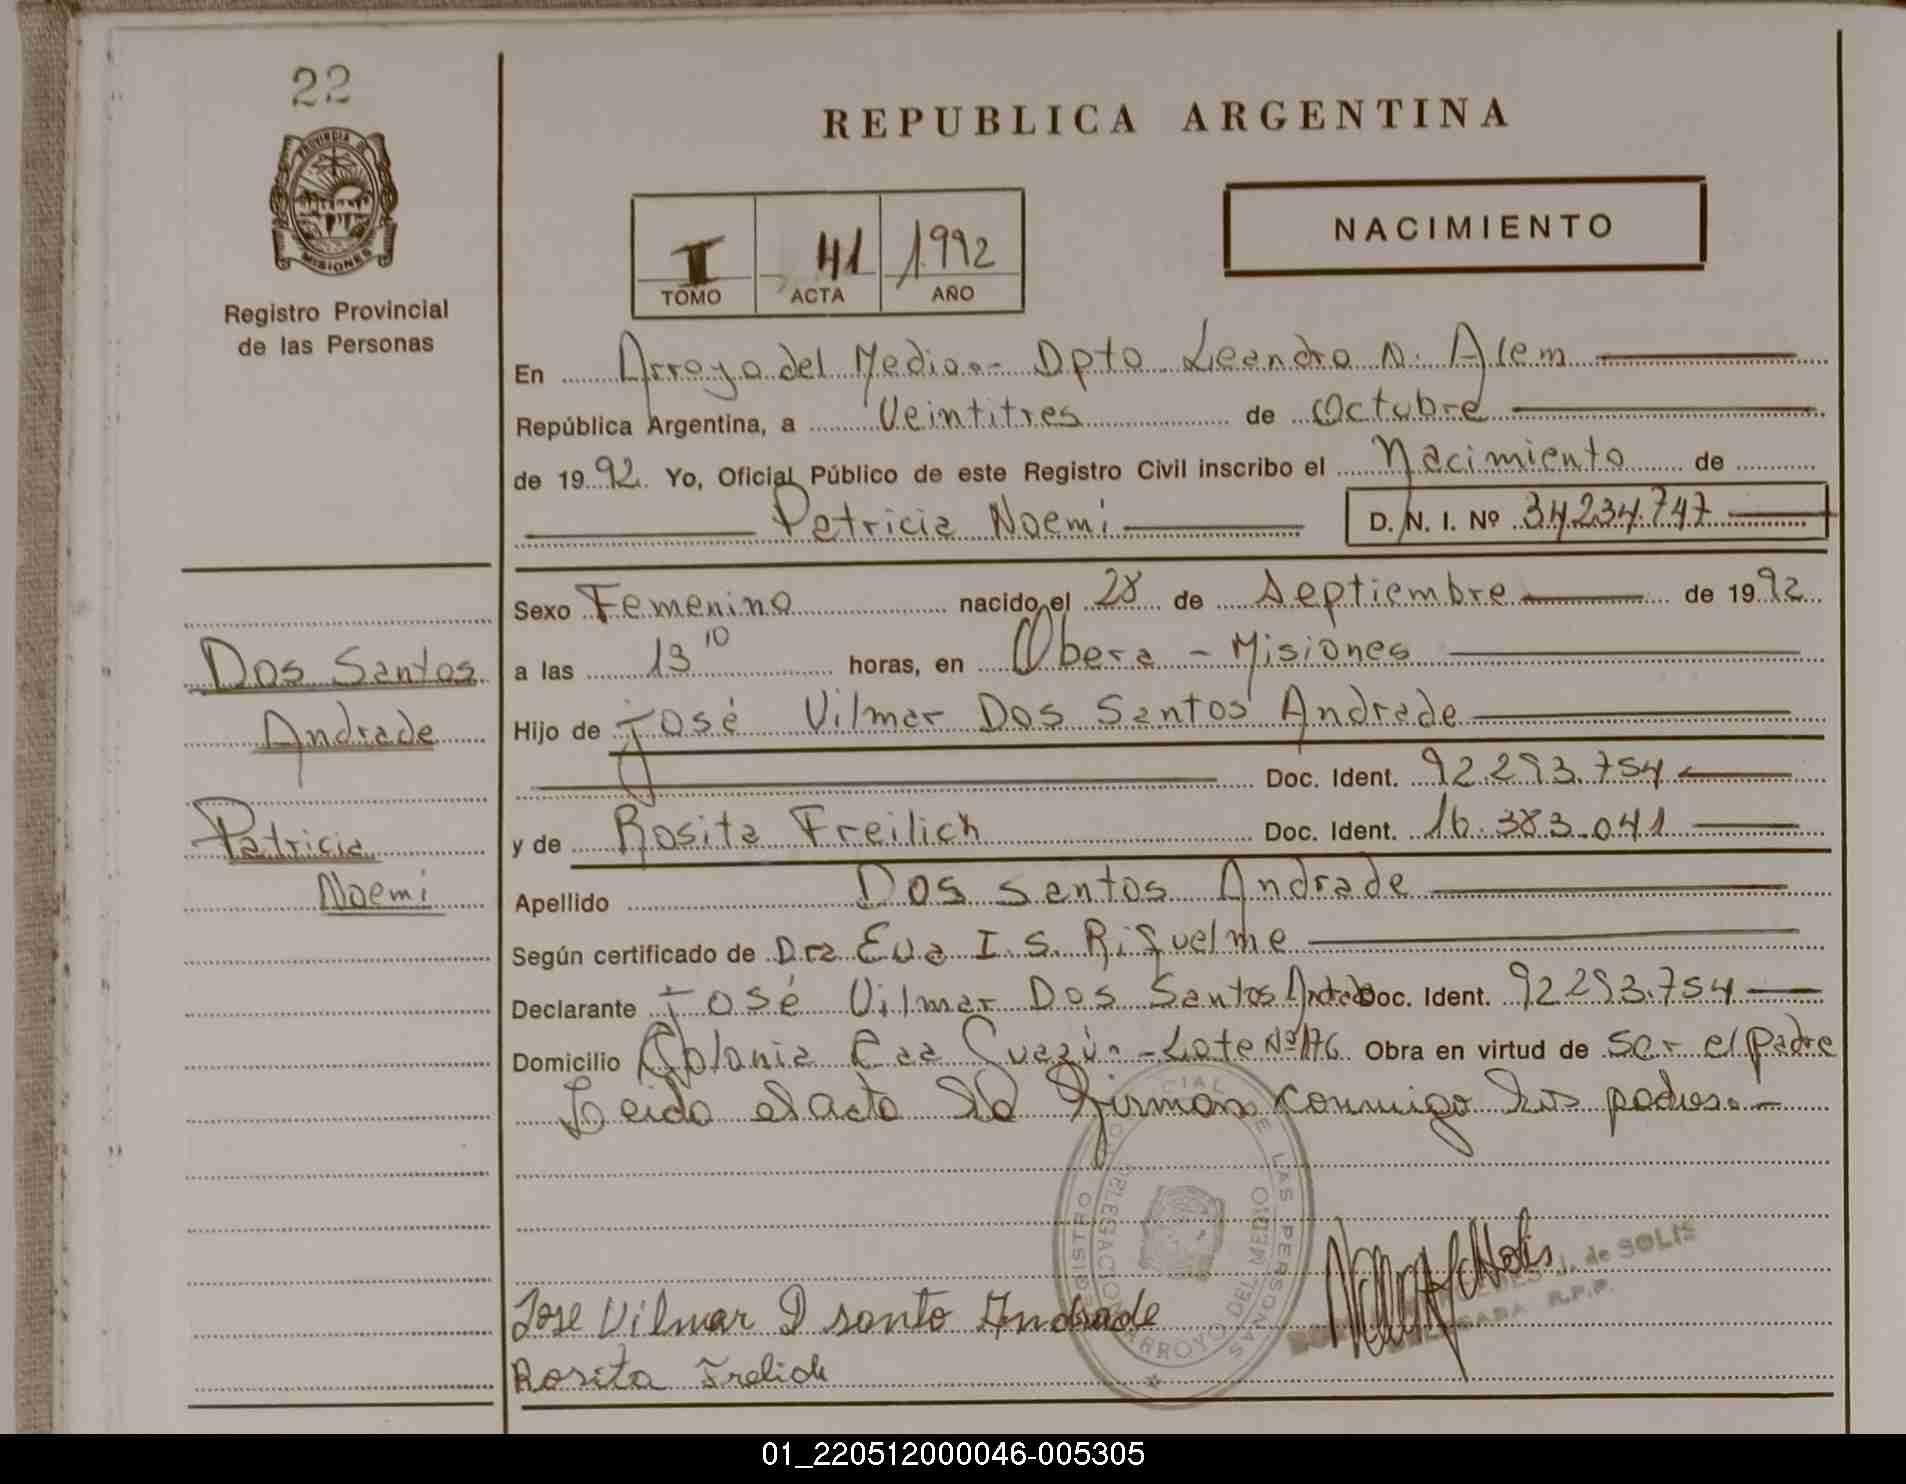 22
PROVINCIA D
MISIONES
Registro Provincial
de las Personas
REPUBLICA ARGENTINA
I 41 1992
TOMO ACTA AÑO
NACIMIENTO
En Arroyo del Medio.- Dpto Leandro N. Alem
República Argentina, a Veintitres de Octubre
de 1992. Yo, Oficial Público de este Registro Civil inscribo el Nacimiento de
Patricia Noemi D. N. I. Nº 34.234.747
Sexo Femenino nacido el 28 de Septiembre de 1992
a las 13 10 horas, en Obera - Misiones
Hijo de José Vilmar Dos Santos Andrade
Doc. Ident. 92.293.754
y de Rosita Freilich Doc. Ident. 16.383.041
Apellido Dos Santos Andrade
Según certificado de Dra Eva I. S. Riquelme
Declarante José Vilmar Dos Santos Andrade Doc. Ident. 92293.754
Domicilio Colonia Caa Guazú.- Lote Nº 176 Obra en virtud de ser el padre
Leida el acta la firman conmigo sus padres.-
Dos Santos
Andrade
Patricia
Noemi
REGISTRO PROVINCIAL DE LAS PERSONAS
DELEGACION ARROYO DEL MEDIO
J. de SOLIS
DELEGADA R.P.P.
Jose Vilmar D santo Andrade
Rosita Frelich
01_220512000046-005305